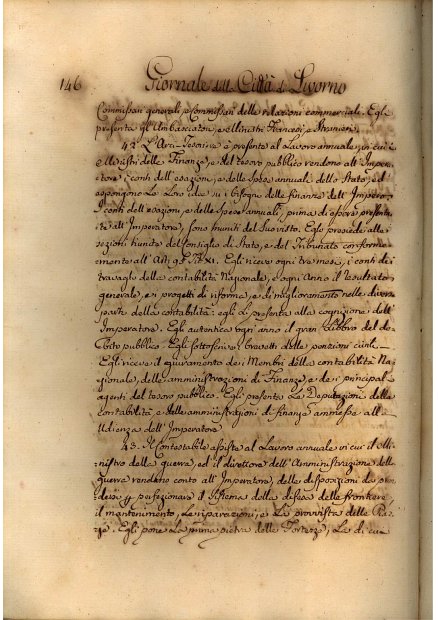 146 Giornale della Città di Livorno
Commissari generali, e Commissari delle relazioni commerciali. Egli
presenta gl'Ambasciatori, e Ministri Francesi, e Stranieri.
42. L'Arci-Tesoriere è presente al Lavoro annuale, in cui i
Ministri delle Finanze, e del tesoro pubblico rendono all'Impera
tore i conti dell'esazione, e delle spese annuali dello Stato, ed
espongono le Loro idee su i bisogni delle finanze dell'Impero.
I conti dell'esazioni, e delle spese annuali, prima d'essere presenta
ti all'Imperatore, sono muniti del suo visto. Egli presiede alle
sezioni riunite del Consiglio di Stato, e del Tribunato conforme
mente all'Art.
Egli riceve ogni tre mesi, i conti dei
travagli della contabilità Nazionale, e ogni Anno il resultato
generale, e i progetti di riforma, e di miglioramento nelle diverse
parti della contabilità: egli li presenta alla cognizione dell'
Imperatore. Egli autentica ogni anno il gran Libbro del de
bito pubblico. Egli sottoscrive i brevetti delle penzioni civili.
Egli riceve il giuramento dei Membri della contabilità Na
zionale, delle amministrazioni di Finanze, e dei principali
agenti del tesoro pubblico. Egli presenta le Deputazioni della
contabilità e delle amministrazioni di finanza ammesse all'
Udienza dell'Imperatore.
43. Il Contestabile assiste al Lavoro annuale in cui il Mi
nistro della guerra, ed il Direttore dell'Amministrazione della
guerra rendono conto all'Imperatore, delle disposizioni da pren
dersi p perfezionare il sistema della difesa delle frontiere,
il mantenimento, le riparazioni, e la provvista delle Piaz
ze. Egli pone la prima pietra delle Fortezze, le di cui